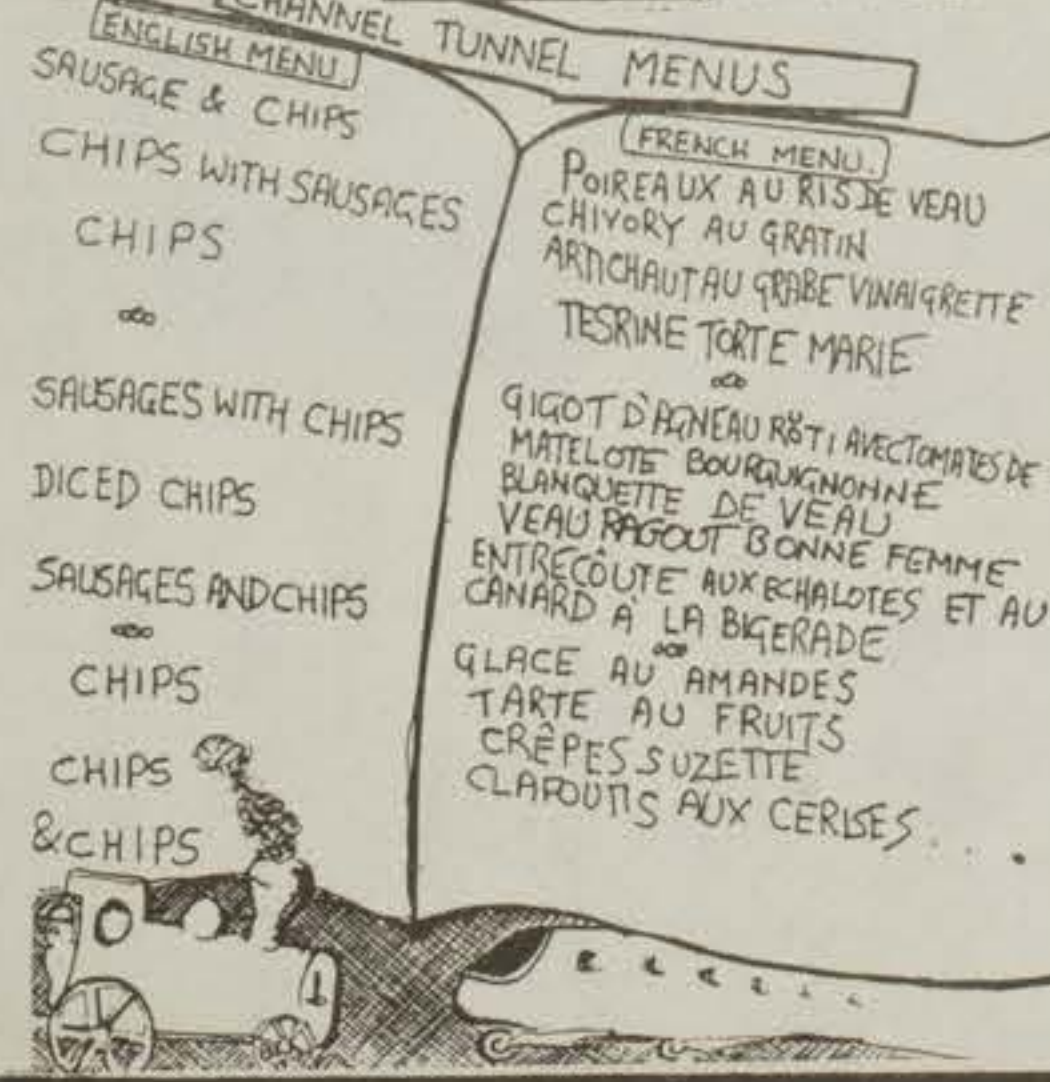 CHANNEL TUNNEL MENUS
ENGLISH MENU.
SAUSAGE & CHIPS
CHIPS WITH SAUSAGES
CHIPS
SAUSAGES WITH CHIPS
DICED CHIPS
SAUSAGES AND CHIPS
CHIPS
CHIPS
& CHIPS
1
FRENCH MENU.
POIREAUX AU RIS DE VEAU
CHIVORY AU GRATIN
ARTICHAUT AU GRABE VINAIGRETTE
TESRINE TORTE MARIE
GIGOT D'AGNEAU RÔTI AVEC TOMATES DE
MATELOTE BOURQUIGNONNE
BLANQUETTE DE VEAU
VEAU RAGOUT BONNE FEMME
ENTRECÔUTE AUX ECHALOTES ET AU
CANARD A LA BIGERADE
GLACE AU AMANDES
TARTE AU FRUITS
CRÊPES SUZETTE
CLAFOUTIS AUX CERISES....